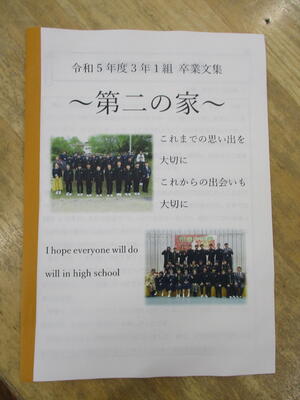 令和5年度3年1組 卒業文集
～第二の家～
これまでの思い出を
大切に
これからの出会いも
大切に
I hope everyone will do
will in high school